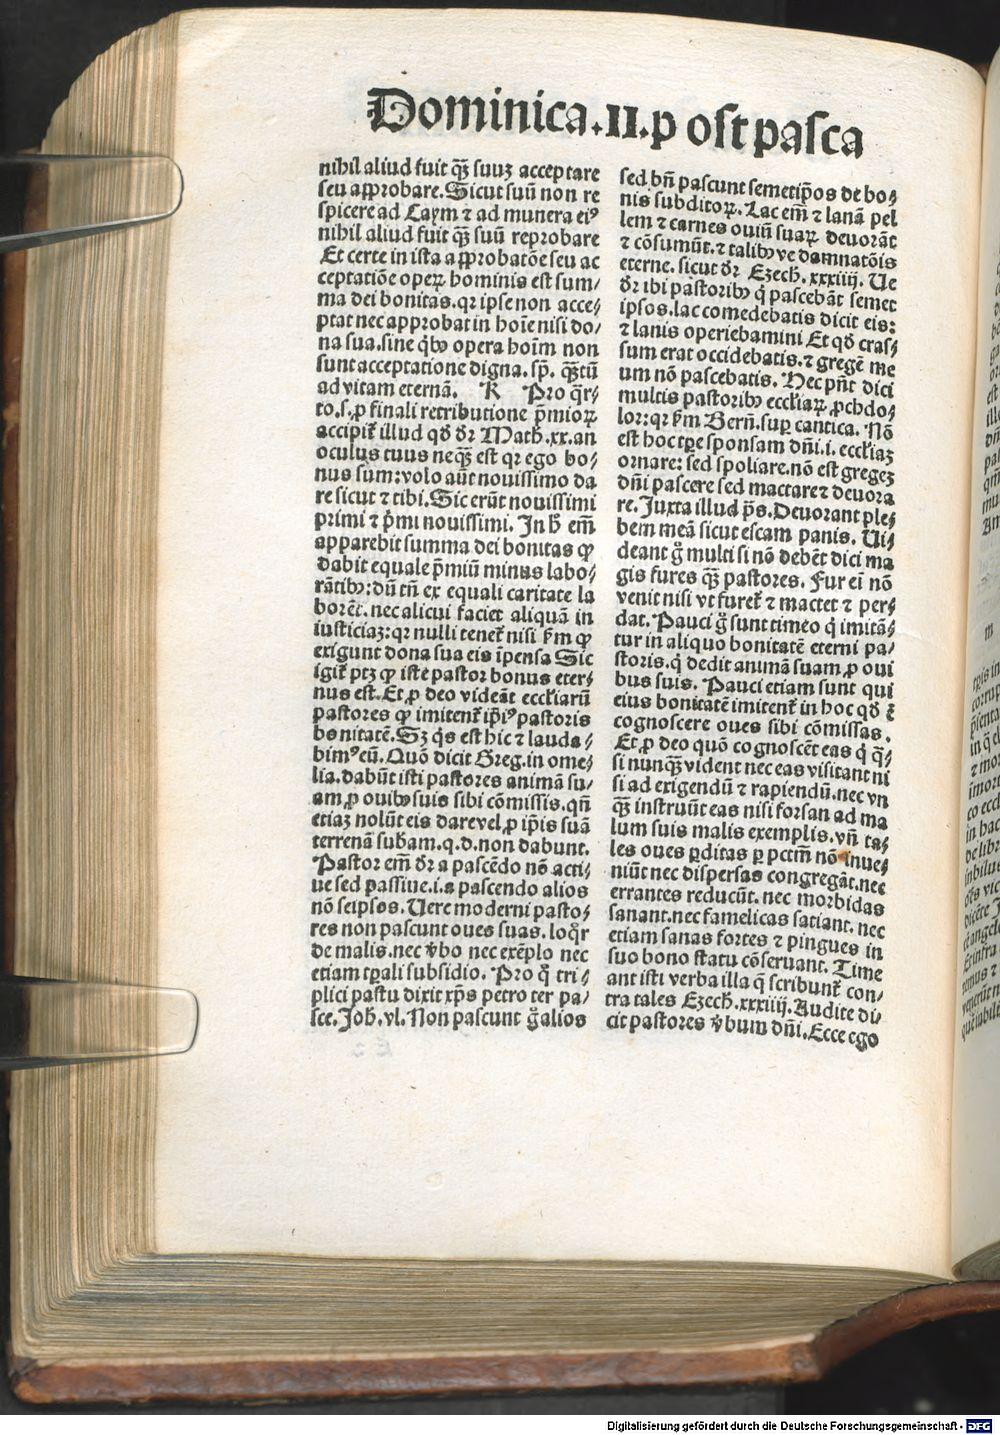 Dominica .II. p ost pasca
nihil aliud fuit q̄ȝ suuȝ acceptare
seu approbare. Sicut suū non re
spicere ad Caym ⁊ ad munera ei⁹
nihil aliud fuit q̄ȝ suū reprobare
Et certe in ista approbatōe seu ac
ceptatiōe operꝝ hominis est sum/
ma dei bonitas. qr ipse non acce/
ptat nec approbat in hoīe nisi do/
na sua. sine q̄bꝰ opera hoīm non
sunt acceptatione digna. sp̄. q̄ȝtū
ad vitam eternā. R Pro q̄r/
to. s. ꝓ finali retributione p̄mioꝝ
accipit᷑ illud qđ dr̄ Math̄. xx. an
oculus tuus neq̄ȝ est qr ego bo/
nus sum: volo aūt nouissimo da
re sicut ⁊ tibi. Sic erūt nouissimi
primi ⁊ p̄mi nouissimi. In h̄ em̄
apparebit summa dei bonitas ꝙ
dabit equale p̄miū minus labo/
rātibꝰ: dū tn̄ ex equali caritate la
borēt. nec alicui faciet aliquā in
iusticiaȝ: qr nulli tenet᷑ nisi ẜm ꝙ
exigunt dona sua eis īpensa Sic
igit᷑ ptȝ ꝙ iste pastor bonus eter/
nus est. Et ꝓ deo videāt eccl̄iarū
pastores ꝙ imitent᷑ ip̄i⁹ pastoris
bonitatē. Sȝ q̄s est hic ⁊ lauda/
bim⁹ eū. Quō dicit Greg. in ome/
lia. dabūt isti pastores animā su/
am ꝓ ouibꝰ suis sibi cōmissis. qn̄
etiaȝ nolūt eis dare vel ꝓ ip̄is suā
terrenā subam̄. q. d. non dabunt.
Pastor em̄ dr̄ a pascēdo nō acti/
ue sed passiue. i. a pascendo alios
nō seipsos. Uere moderni pasto/
res non pascunt oues suas. loq̄r
de malis. nec v̄bo nec exēplo nec
etiam tꝑali subsidio. Pro q̄ tri/
plici pastu dixit xp̄s petro ter pa/
sce. Joh̄. vl. Non pascunt ḡ alios
sed bn̄ pascunt semetip̄os de bo/
nis subditoꝝ. Lac em̄ ⁊ lanā pel
lem ⁊ carnes ouiū suaꝝ deuorāt
⁊ cōsumūt. ⁊ talibꝰ ve damnatōis
eterne. sicut dr̄ Ezech̄. xxxiiij. Ue
dr̄ ibi pastoribꝰ q̄ pascebāt semet
ipsos. lac comedebatis dicit eis:
⁊ lanis operiebamini Et qđ cras/
sum erat occidebatis. ⁊ gregē me
um nō pascebatis. Nec pn̄t dici
multis pastoribꝰ eccl̄iaꝝ ꝓchdo/
lor: qr ẜm Bern̄. suꝑ cantica. Nō
est hoc tꝑe sponsam dn̄i. i. eccl̄iaȝ
ornare: sed spoliare. nō est gregeȝ
dn̄i pascere sed mactare ⁊ deuora
re. Juxta illud p̄s. Deuorant ple/
bem meā sicut escam panis. Ui/
deant ḡ multi si nō debēt dici ma
gis fures q̄ȝ pastores. Fur eī nō
venit nisi vt furet᷑ ⁊ mactet ⁊ per/
dat. Pauci ḡ sunt timeo q̄ imitā/
tur in aliquo bonitatē eterni pa/
storis. q̄ dedit animā suam ꝓ oui
bus suis. Pauci etiam sunt qui
eius bonitatē imitent᷑ in hoc qđ ē
cognoscere oues sibi cōmissas.
Et ꝓ deo quō cognoscēt eas q̄ q̄/
si nunq̄ȝ vident nec eas visitant ni
si ad exigendū ⁊ rapiendū. nec vn
q̄ȝ instruūt eas nisi forsan ad ma
lum suis malis exemplis. vn̄ ta/
les oues ꝑditas ꝑ pctm̄ nō inue/
niūt nec dispersas congregāt. nec
errantes reducūt. nec morbidas
sanant. nec famelicas satiant. nec
etiam sanas fortes ⁊ pingues in
suo bono statu cōseruant. Time
ant isti verba illa q̄ scribunt᷑ con/
tra tales Ezech̄. xxxiiij. Audite di/
cit pastores v̄bum dn̄i. Ecce ego
Digitalisierung gefördert durch die Deutsche Forschungsgemeinschaft - DFG